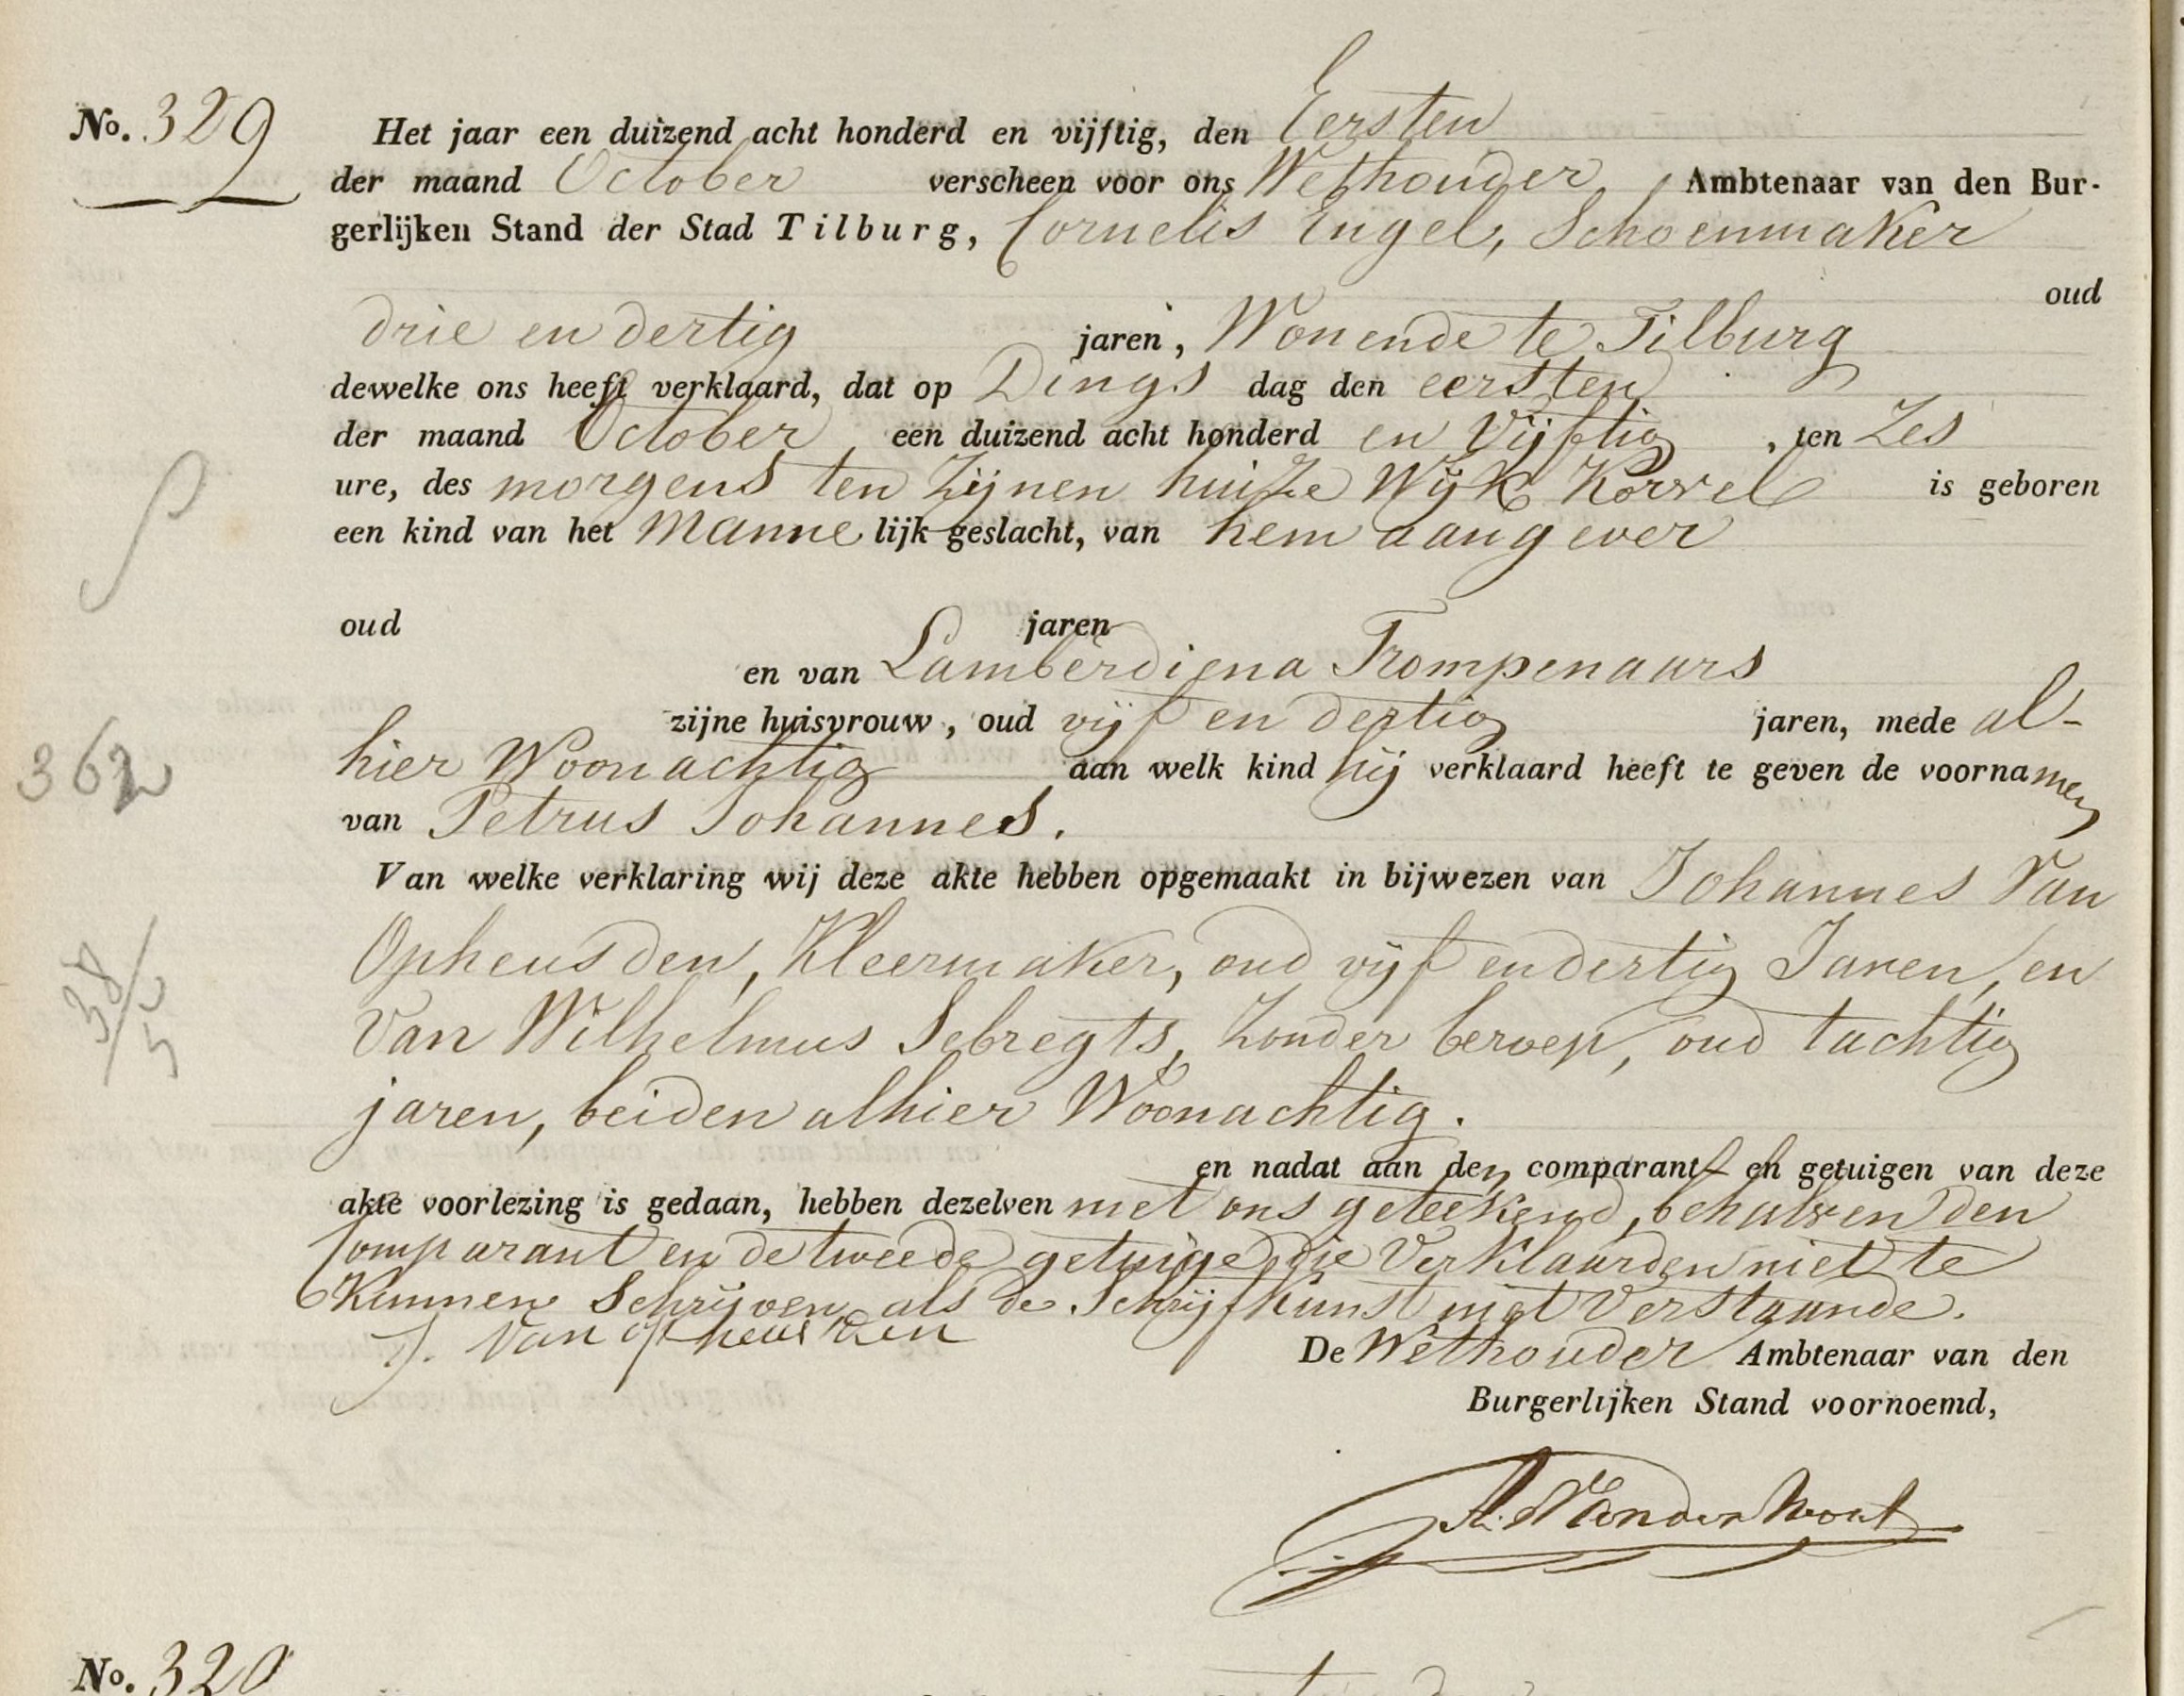 No. 329
Het jaar een duizend acht honderd en vijftig, den Eersten
der maand October verscheen voor ons Wethouder, Ambtenaar van den Bur-
gerlijken Stand der Stad Tilburg, Cornelis Engel, Schoenmaker
oud
drie en dertig jaren, Wonende te Tilburg
dewelke ons heeft verklaard, dat op Dings dag den eersten
der maand October een duizend acht honderd en Vijftig, ten Zes
ure, des morgens ten Zijnen huize Wijk Korvel is geboren
een kind van het Manne lijk geslacht, van hem aangever
oud jaren
en van Lamberdiena Trompenaars
zijne huisvrouw, oud vijf en dertig jaren, mede al-
hier Woonachtig aan welk kind hij verklaard heeft te geven de voornamen
van Petrus Johannes.
Van welke verklaring wij deze akte hebben opgemaakt in bijwezen van Johannes Van
Opheusden, Kleermaker, oud vijf en dertig Jaren, en
Van Wilhelmus Sebregts, Zonder beroep, oud tachtig
jaren, beiden alhier Woonachtig.
en nadat aan den comparant en getuigen van deze
akte voorlezing is gedaan, hebben dezelven met ons geteekend, behalven den
Comparant en de tweede getuige, die Verklaarden niet te
Kunnen Schrijven als de Schrijfkunst niet Verstaande.
J. Van opheusden
De Wethouder Ambtenaar van den
Burgerlijken Stand voornoemd,
362
38/5
No. 320